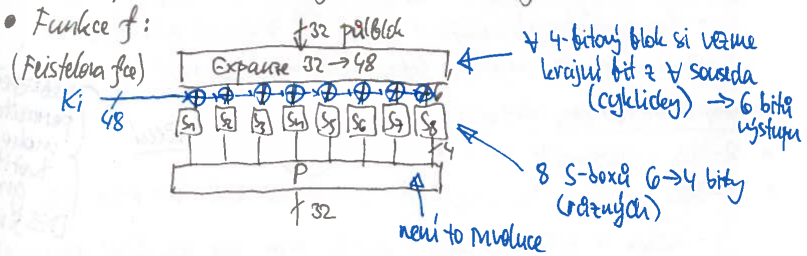 • Funkce f:
(Feistelova fce)
32 půlblok
Expanze 32 → 48
Ki
48
S1 S2 S3 S4 S5 S6 S7 S8
4
P
32
∀ 4-bitový blok si vezme
krajní bit z ∀ souseda
(cyklicky) → 6 bitů
výstupu
8 S-boxů 6→4 bity
(různých)
není to involuce